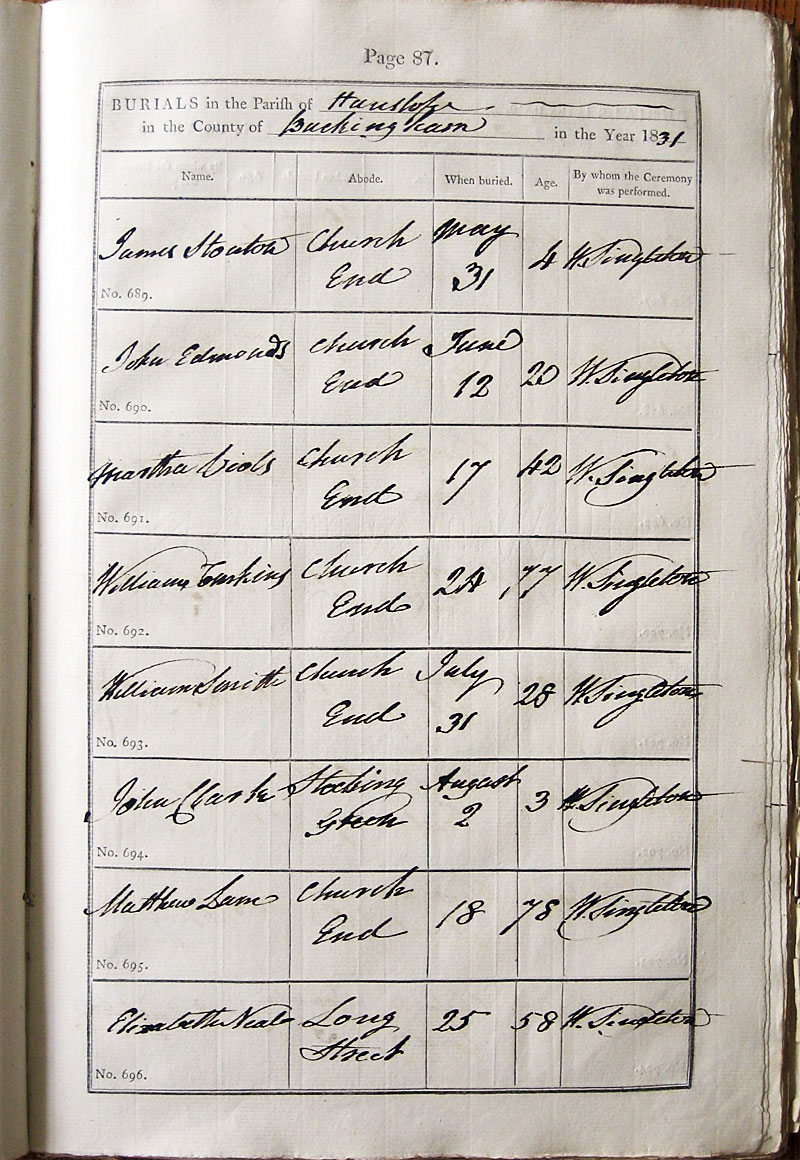 Page 87.
BURIALS in the Parish of Hanslope
in the County of Buckingham in the Year 1831
Name. Abode. When buried. Age. By whom the Ceremony was performed.
James Stonton Church End May 31 4 W. Singleton
No. 689.
John Edmonds Church End June 12 20 W. Singleton
No. 690.
Martha Church End 17 42 W. Singleton
No. 691.
William Church End 24 77 W. Singleton
No. 692.
William Smith Church End July 31 28 W. Singleton
No. 693.
John Clarke Stocking Green August 2 3 W. Singleton
No. 694.
Matthew Church End 18 78 W. Singleton
No. 695.
Elizabeth Neale Long Street 25 58 W. Singleton
No. 696.